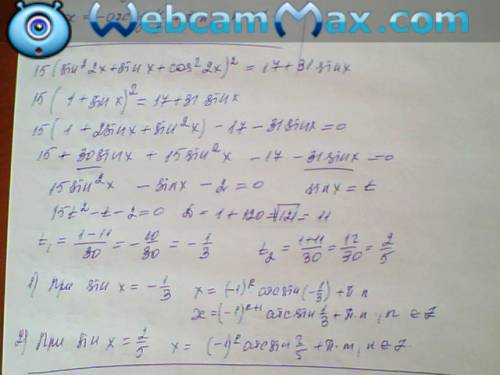 WebcamMax.com
15(sin²2x+sinx+cos²2x)² = 17+31sinx
15(1+sinx)² = 17+31sinx
15(1+2sinx+sin²x) -17-31sinx=0
15+30sinx+15sin²x -17 -31sinx=0
15sin²x -sinx-2=0 sinx=t
15t²-t-2=0 D=1+120=√121=11
t₁=(1-11)/30=-10/30=-1/3 t₂=(1+11)/30=12/30=2/5
1) При sin x=-1/3 x=(-1)ᵏarcsin(-1/3)+π.n
x=(-1)ᵏ⁺¹arcsin 1/3+π.n, n∈Z
2) При sin x=2/5 x=(-1)ᵏarcsin 2/5+π.n, n∈Z